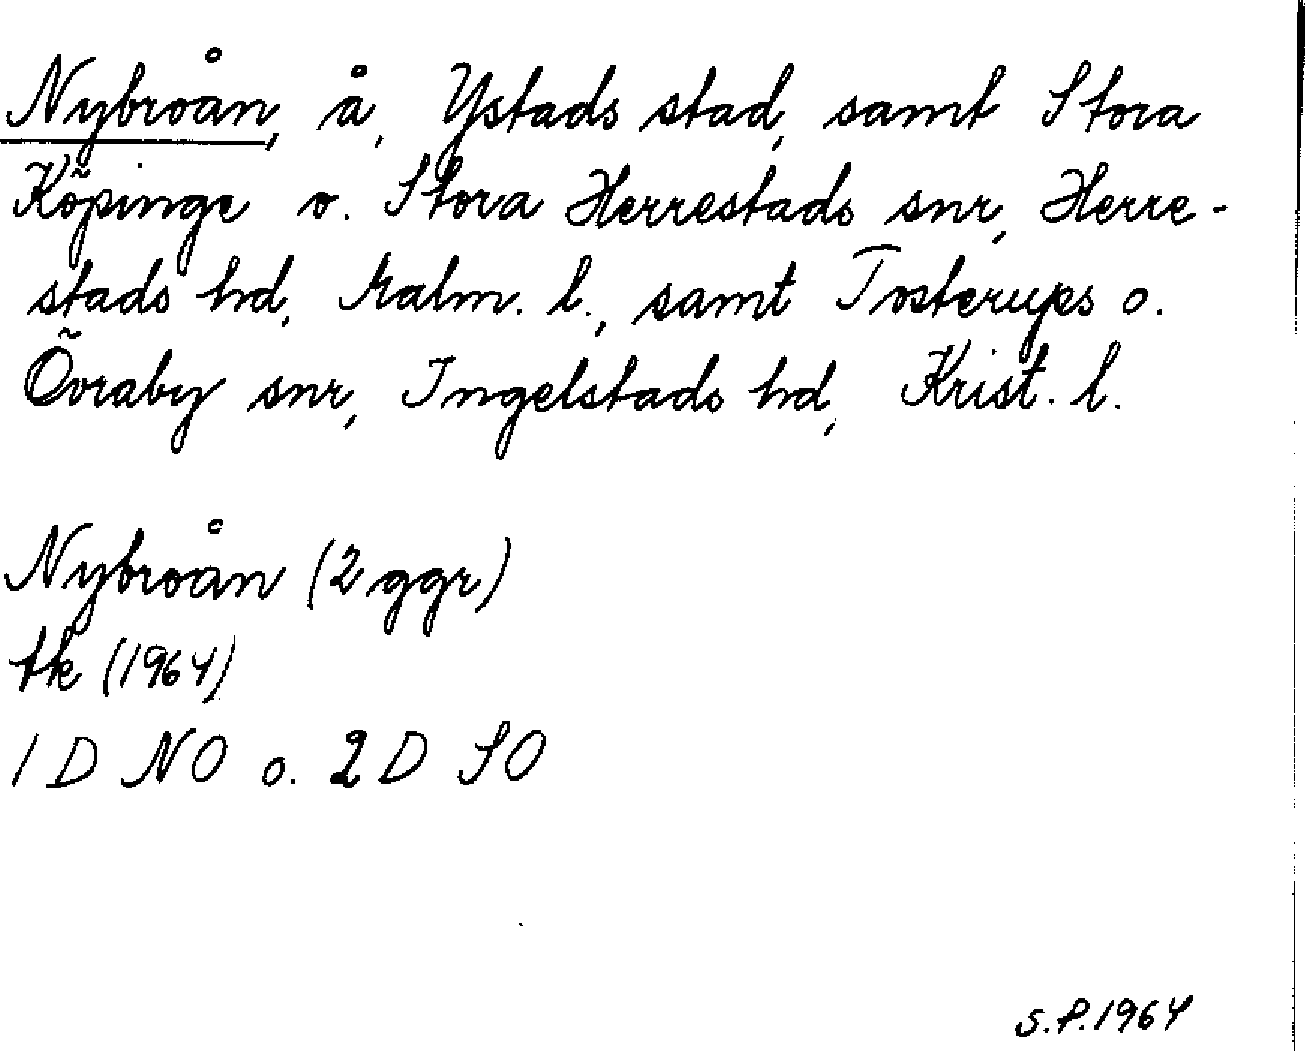 Nybroån, å, Ystads stad, samt Stora
Köpinge o. Stora Herrestads snr, Herre-
stads hd, Malm. l., samt Tosterups o.
Övraby snr, Ingelstads hd, Krist. l.
Nybroån (2 ggr)
tk (1964)
1 D NO o. 2 D SO
S.P. 1964